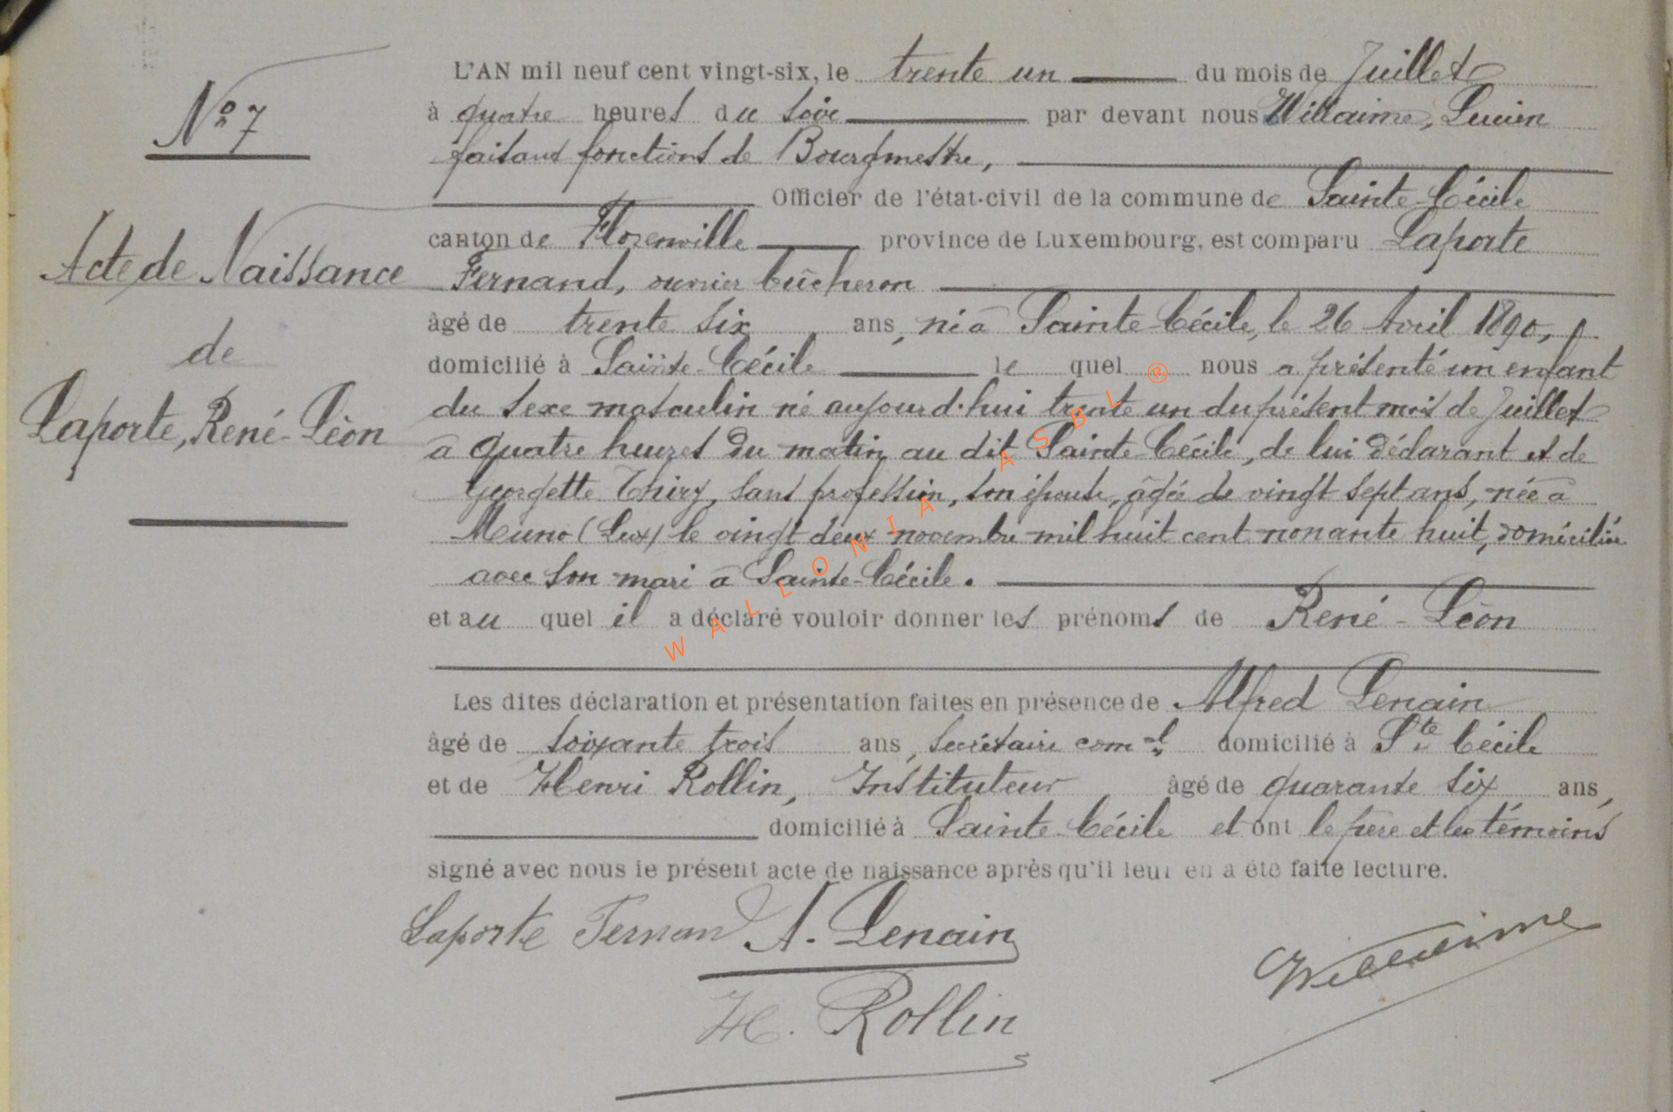 N° 7
Acte de Naissance
de
Laporte, René-Léon
L'AN mil neuf cent vingt-six, le trente un du mois de Juillet
à quatre heures du soir par devant nous Willaime, Lucien
faisant fonctions de Bourgmestre,
Officier de l'état-civil de la commune de Sainte-Cécile
canton de Florenville province de Luxembourg, est comparu Laporte
Fernand, ouvrier bûcheron
âgé de trente six ans, né à Sainte-Cécile, le 26 Avril 1890,
domicilié à Sainte-Cécile le quel nous a présenté un enfant
du sexe masculin né aujourd'hui trente un du présent mois de Juillet
à quatre heures du matin au dit Sainte-Cécile, de lui déclarant et de
Georgette Thiry, sans profession, son épouse, âgée de vingt sept ans, née à
Muno (Lux) le vingt deux novembre mil huit cent nonante huit, domiciliée
avec son mari à Sainte-Cécile.
et au quel il a déclaré vouloir donner les prénoms de René-Léon
Les dites déclaration et présentation faites en présence de Alfred Lenain
âgé de soixante trois ans, secrétaire com-l domicilié à Ste Cécile
et de Henri Rollin, Instituteur âgé de quarante six ans,
domicilié à Sainte-Cécile et ont le père et les témoins
signé avec nous le présent acte de naissance après qu'il leur en a été faite lecture.
Laporte Fernand A. Lenain
Willaime
H. Rollin
WALLONIA ASBL ®